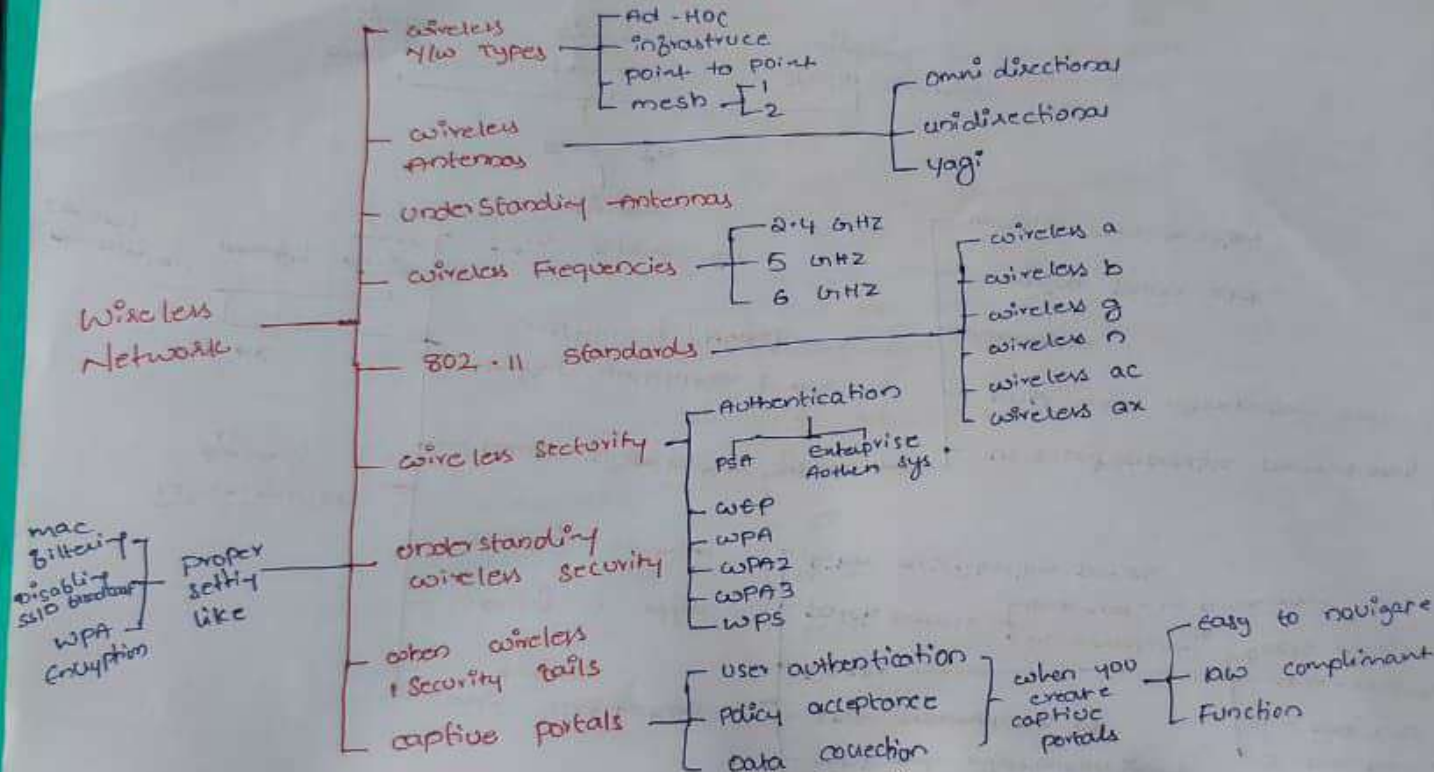 Wireless
Network
wireless
N/W Types
Ad-HOC
infrastruce
point to point
mesh
1
2
wireless
Antennas
omni directional
unidirectional
yagi
understanding Antennas
wireless Frequencies
2.4 GHZ
5 GHZ
6 GHZ
802.11 standards
wireless a
wireless b
wireless g
wireless n
wireless ac
wireless ax
wireless secturity
Authentication
PSA
Enterprise
Authen sys.
WEP
WPA
WPA2
WPA3
WPS
understanding
wireless security
proper
setting
like
mac
filtering
Disabling
SSID
WPA
Encryption
when wireless
security fails
captive portals
user authentication
policy acceptance
Data collection
when you
create
captive
portals
easy to navigate
law complimant
Function